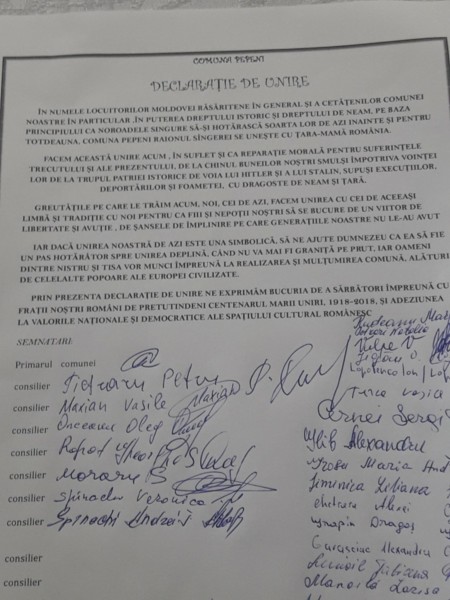 COMUNA PEPENI
DECLARAȚIE DE UNIRE
ÎN NUMELE LOCUITORILOR MOLDOVEI RĂSĂRITENE ÎN GENERAL ȘI A CETĂȚENILOR COMUNEI
NOASTRE ÎN PARTICULAR ,ÎN PUTEREA DREPTULUI ISTORIC ȘI DREPTULUI DE NEAM, PE BAZA
PRINCIPIULUI CA NOROADELE SINGURE SĂ-ȘI HOTĂRASCĂ SOARTA LOR DE AZI INAINTE ȘI PENTRU
TOTDEAUNA, COMUNA PEPENI RAIONUL SÎNGEREI SE UNEȘTE CU ȚARA-MAMĂ ROMÂNIA.
FACEM ACEASTĂ UNIRE ACUM , ÎN SUFLET ȘI CA REPARAȚIE MORALĂ PENTRU SUFERINȚELE
TRECUTULUI ȘI ALE PREZENTULUI, DE LA CHINUL BUNEILOR NOȘTRI SMULȘI ÎMPOTRIVA VOINȚEI
LOR DE LA TRUPUL PATRIEI ISTORICE DE VOIA LUI HITLER ȘI A LUI STALIN, SUPUȘI EXECUȚIILOR,
DEPORTĂRILOR ȘI FOAMETEI, CU DRAGOSTE DE NEAM ȘI ȚARĂ.
GREUTĂȚILE PE CARE LE TRĂIM ACUM, NOI, CEI DE AZI, FACEM UNIREA CU CEI DE ACEEAȘI
LIMBĂ ȘI TRADIȚIE CU NOI PENTRU CA FIII ȘI NEPOȚII NOȘTRI SĂ SE BUCURE DE UN VIITOR DE
LIBERTATE ȘI AVUȚIE , DE ȘANSELE DE ÎMPLINIRE PE CARE GENERAȚIILE NOASTRE NU LE-AU AVUT
IAR DACĂ UNIREA NOASTRĂ DE AZI ESTE UNA SIMBOLICĂ, SĂ NE AJUTE DUMNEZEU CA EA SĂ FIE
UN PAS HOTĂRÂTOR SPRE UNIREA DEPLINĂ, CÂND NU VA MAI FI GRANIȚĂ PE PRUT, IAR OAMENI
DINTRE NISTRU ȘI TISA VOR MUNCI ÎMPREUNĂ LA REALIZAREA ȘI MULȚUMIREA COMUNĂ, ALĂTURI
DE CELELALTE POPOARE ALE EUROPEI CIVILIZATE.
PRIN PREZENTA DECLARAȚIE DE UNIRE NE EXPRIMĂM BUCURIA DE A SĂRBĂTORI ÎMPREUNĂ CU
FRAȚII NOȘTRI ROMÂNI DE PRETUTINDENI CENTENARUL MARII UNIRI, 1918-2018, ȘI ADEZIUNEA
LA VALORILE NAȚIONALE ȘI DEMOCRATICE ALE SPAȚIULUI CULTURAL ROMÂNESC
SEMNATARI
Primarul comunei
consilier Petru
consilier Marian Vasile Marian
consilier Onceanu Oleg
consilier
consilier Moraru
consilier Veronica
consilier Andrei
consilier
consilier
Vulpe V
Țurca Vasile
Cernei Sergi
Glib Alexandru
Maria
Dragoș
Alexandru
Larisa